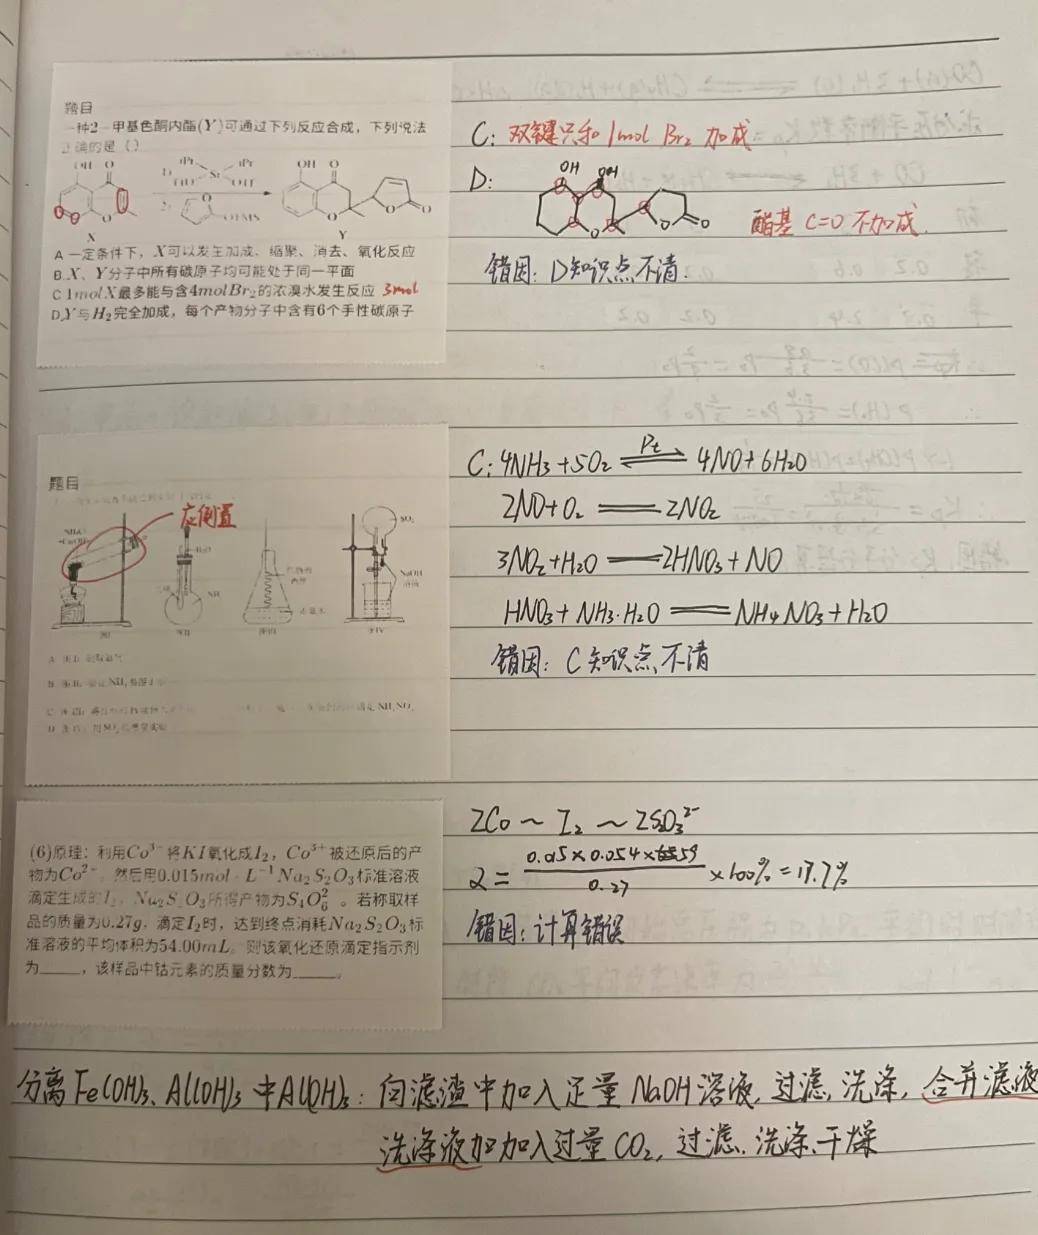 题目
一种2－甲基色酮内酯(Y)可通过下列反应合成，下列说法
正确的是（）
OH O
X
1)
iPr iPr
TfO Si OTf
2)
OTMS
OH O
Y
A 一定条件下，X可以发生加成、缩聚、消去、氧化反应
B.X、Y分子中所有碳原子均可能处于同一平面
C 1molX最多能与含4molBr₂的浓溴水发生反应 3mol
D.Y与H₂完全加成，每个产物分子中含有6个手性碳原子
C: 双键只和1mol Br₂ 加成
D:
OH OH
O O O
酯基 C=O 不加成.
错因: D知识点不清.
题目
应倒置
NH₃
SO₂
NaOH
溶液
C: 4NH₃+5O₂ ⇌(Pt) 4NO+6H₂O
2NO+O₂ == 2NO₂
3NO₂+H₂O == 2HNO₃+NO
HNO₃+NH₃·H₂O == NH₄NO₃+H₂O
错因: C知识点不清
(6)原理：利用Co³⁺将KI氧化成I₂，Co³⁺被还原后的产
物为Co²⁺。然后用0.015mol·L⁻¹Na₂S₂O₃标准溶液
滴定生成的I₂，Na₂S₂O₃所得产物为S₄O₆²⁻。若称取样
品的质量为0.27g，滴定I₂时，达到终点消耗Na₂S₂O₃标
准溶液的平均体积为54.00mL。则该氧化还原滴定指示剂
为____，该样品中钴元素的质量分数为____。
2Co ~ I₂ ~ 2S₂O₃²⁻
α = 0.015×0.054×59 / 0.27 ×100% = 17.7%
错因: 计算错误
分离Fe(OH)₃、Al(OH)₃中Al(OH)₃: 向滤渣中加入足量NaOH溶液, 过滤, 洗涤, 合并滤液
洗涤液加加入过量CO₂, 过滤, 洗涤、干燥